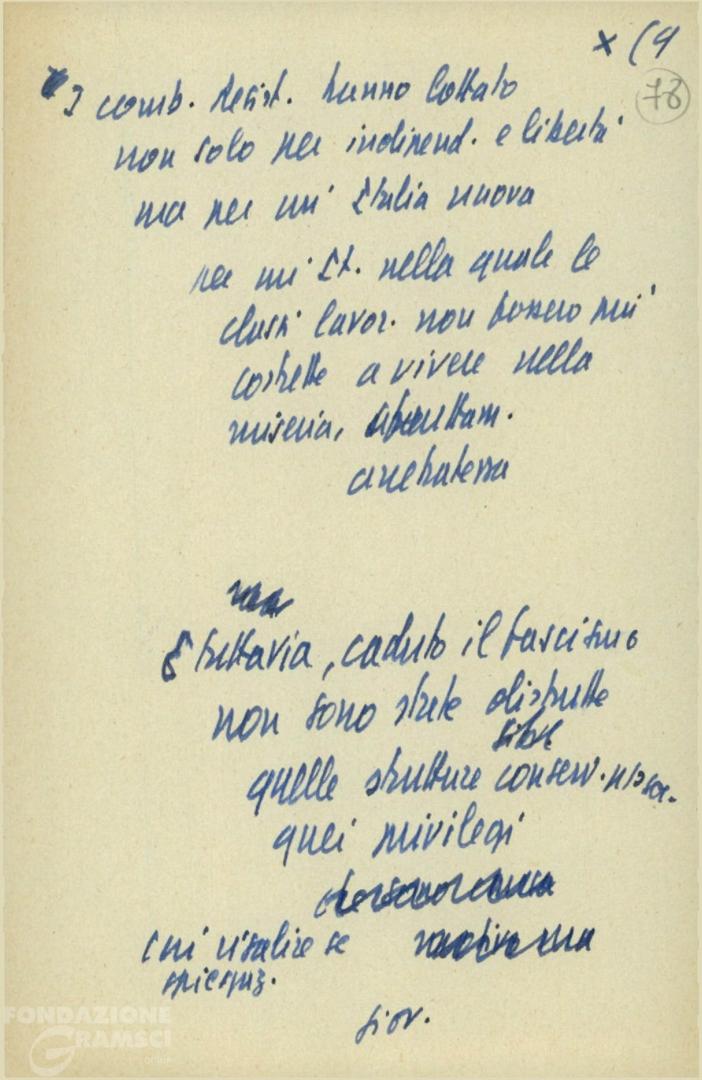 x (9
78
I comb. Resist. hanno lottato
non solo per indipend. e libertà
ma per un' Italia nuova
per un' It. nella quale le
classi lavor. non fossero più
costrette a vivere nella
miseria, sfruttam.
arretratezza
ma
E tuttavia, caduto il fascismo
non sono state distrutte
quelle strutture conserv.
quei privilegi
cui risalire se
spiegaz.
Giov.
FONDAZIONE
GRAMSCI